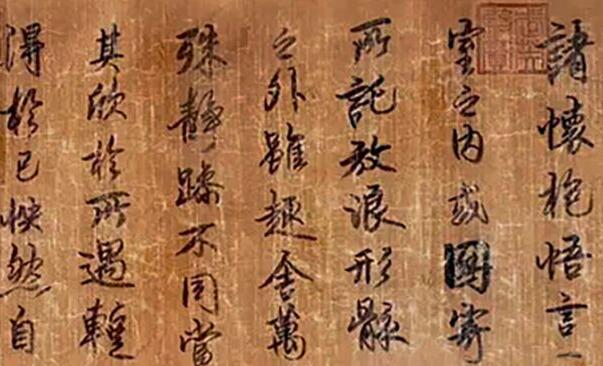 諸懷抱悟言一
室之内或因寄
所託放浪形骸
之外雖趣舍萬
殊静躁不同當
其欣於所遇蹔
得於己怏然自